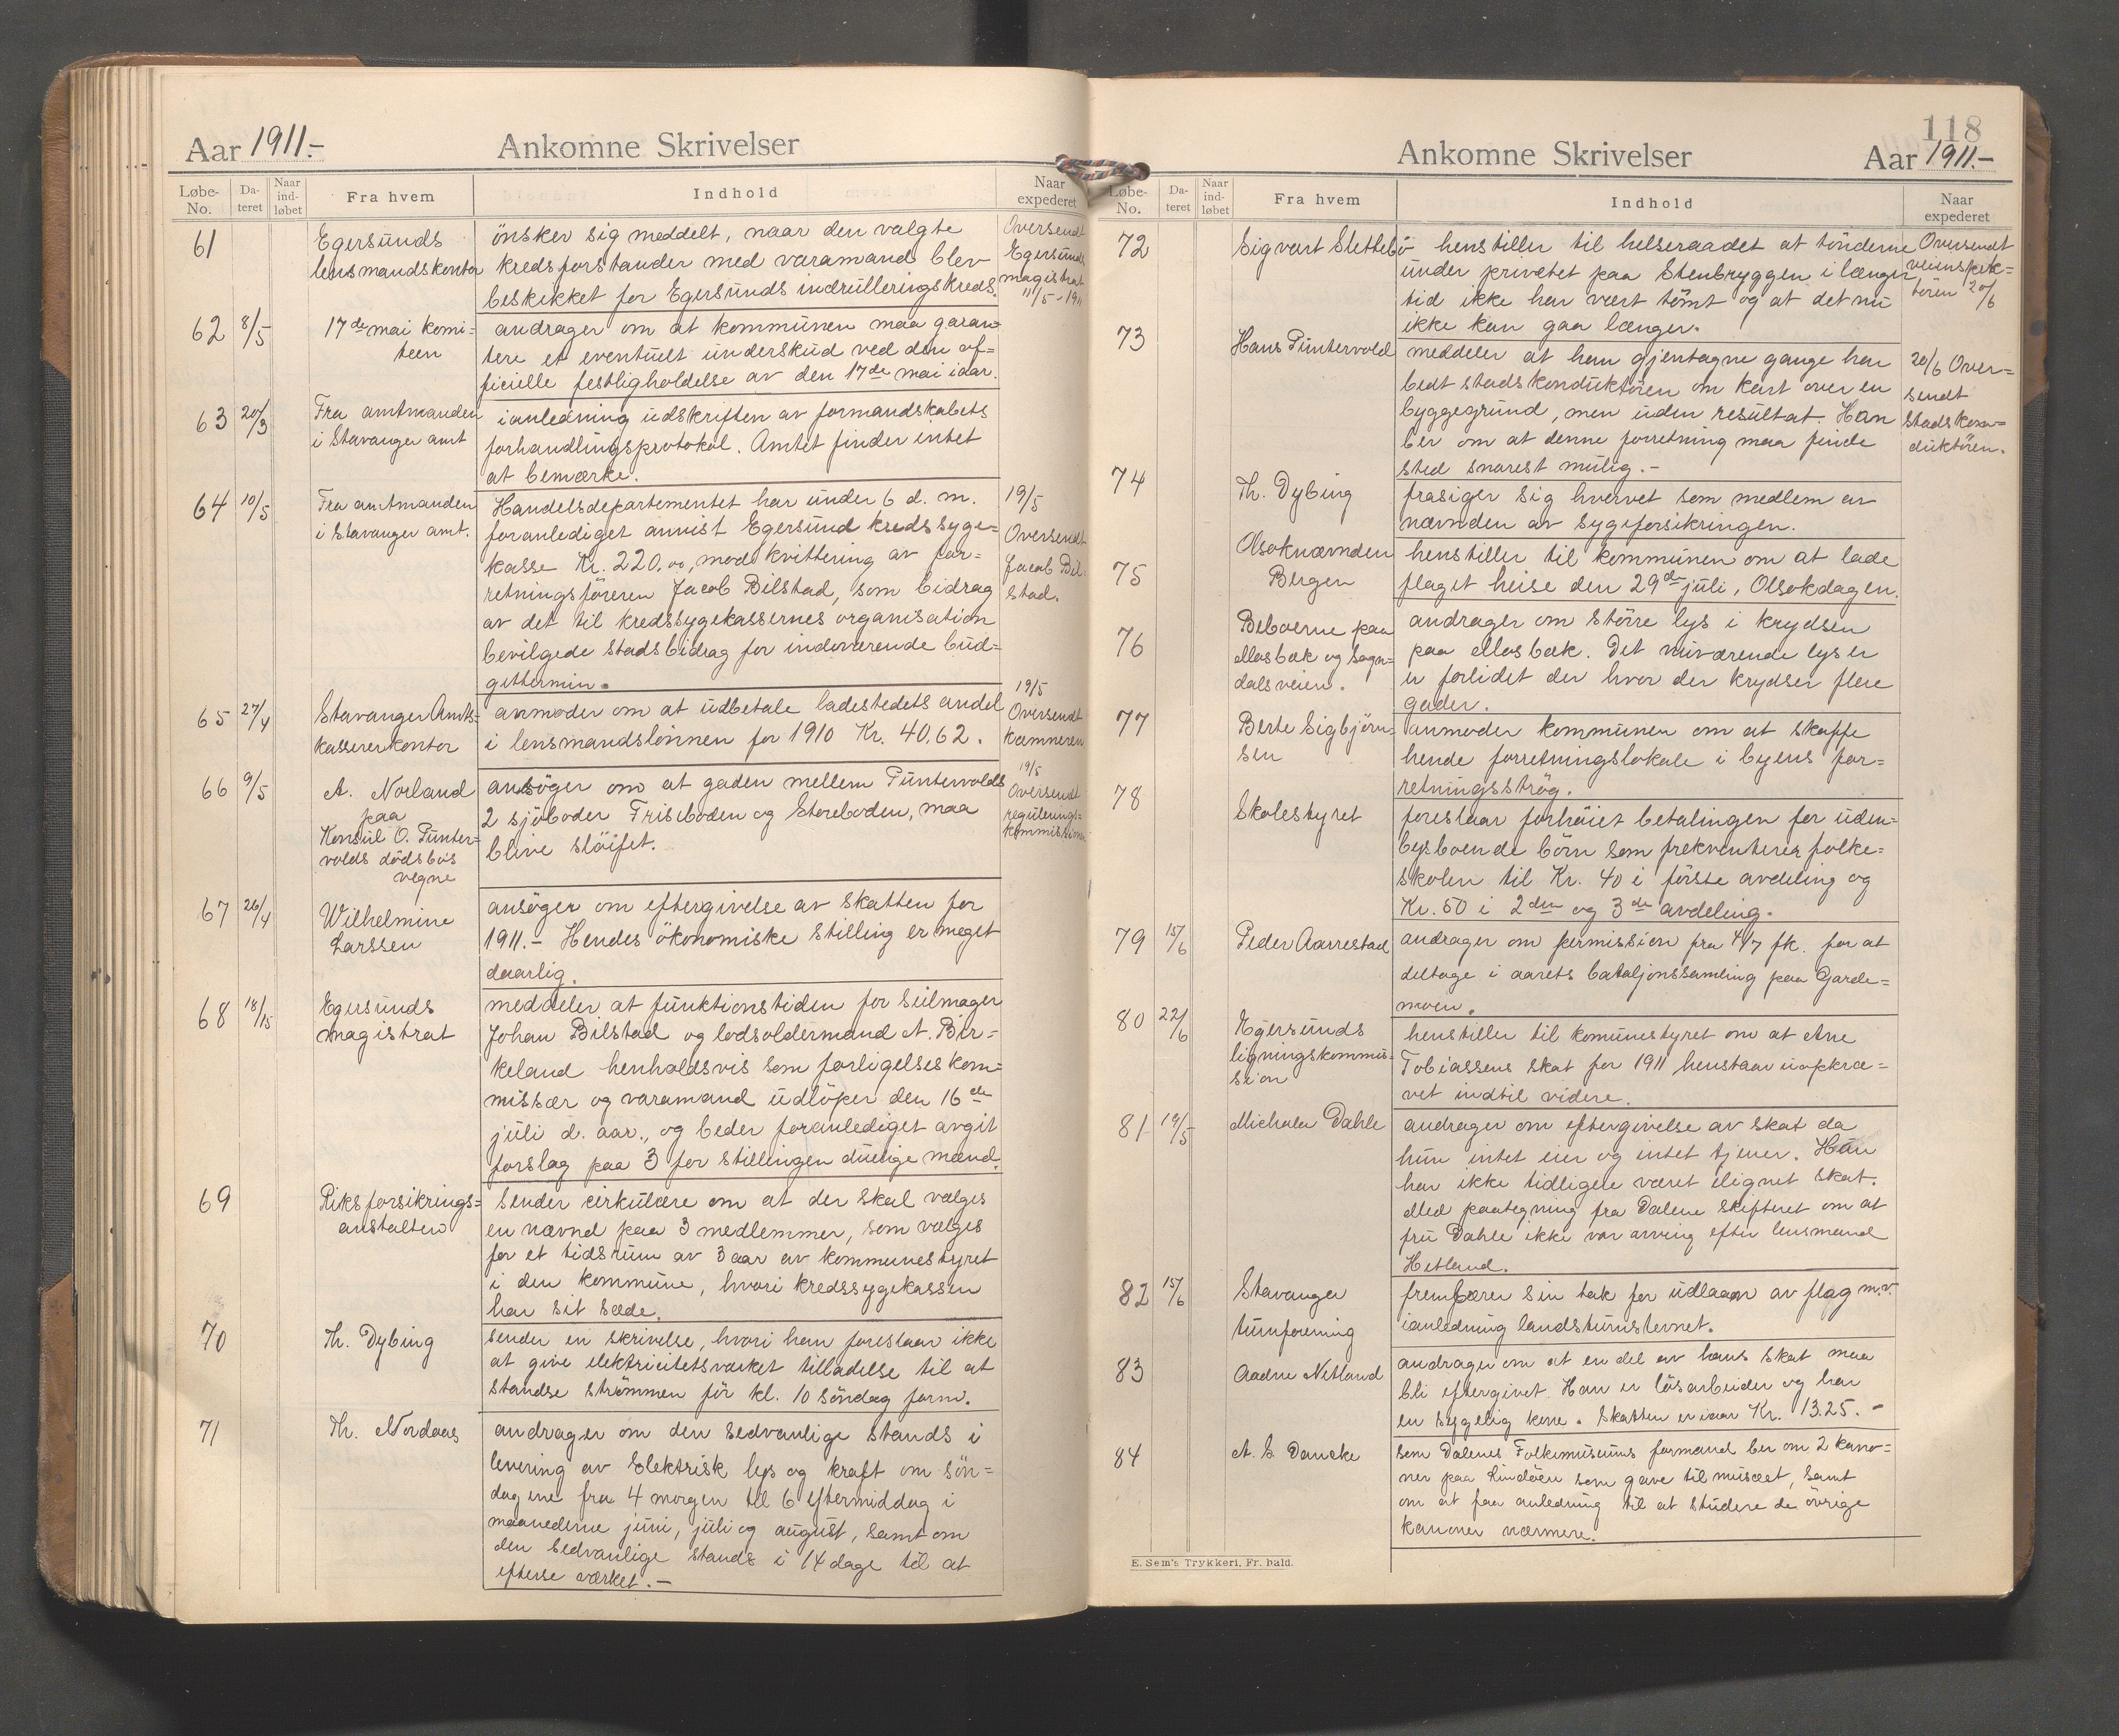 Aar 1911.-
Ankomne Skrivelser
Løbe-No.
Dateret
Naar indløbet
Fra hvem
Indhold
Naar expederet
61
Egersunds
lensmandskontor
ønsker sig meddelt, naar den valgte
kredsforstander med varamand blev
beskikket for Egersunds indrulleringskreds.
Oversendt
Egersunds
magistrat
11/5-1911
62 8/5
17de mai komi-
teen
andrager om at kommunen maa garan-
tere et eventuelt underskud ved den of-
ficielle festligholdelse av den 17de mai iaar.
63 20/3
Fra amtmanden
i Stavanger amt
ianledning udskriften av formandskabets
forhandlingsprotokol. Amtet finder intet
at bemærke.
64 10/5
Fra amtmanden
i Stavanger amt.
Handelsdepartementet har under 6 d. m.
foranlediget anvist Egersund kredssyge-
kasse Kr. 220.00, mod kvittering av for-
retningsføreren Jacob Bilstad, som bidrag
av det til kredssygekassernes organisation
bevilgede stadsbidrag for indeværende bud-
gettermin.
19/5
Oversendt
Jacob Bil-
stad.
65 27/4
Stavanger Amts-
kassererkontor
anmoder om at udbetale ladestedets andel
i lensmandslønnen for 1910 Kr. 40.62.
19/5
Oversendt
kæmneren
66 9/5
A. Norland
paa
Konsul O. Punter-
volds dødsbos
vegne
ansøger om at gaden mellem Puntervolds
2 sjøboder Friseboden og Storeboden, maa
blive sløifet.
19/5
Oversendt
regulerings-
kommissionen
67 26/4
Wilhelmine
Larssen
ansøger om eftergivelse av skatten for
1911.- Hendes økonomiske stilling er meget
daarlig.
68 18/15
Egersunds
magistrat
meddeler at funktionstiden for seilmager
Johan Bilstad og lodsoldermand A. Bir-
keland henholdsvis som forligelseskom-
missær og varamand udløper den 16de
juli d. aar., og beder foranlediget avgit
forslag paa 3 for stillingen duelige mænd.
69
Riksforsikrings-
anstalten
sender cirkulære om at der skal vælges
en nævnd paa 3 medlemmer, som vælges
for et tidsrum av 3 aar av kommunestyret
i den kommune, hvori kredssygekassen
har sit sæde.
70
Th. Dybing
sender en skrivelse, hvori han foreslaar ikke
at give elektricitetsværket tilladelse til at
standse strømmen før kl. 10 søndag form.
71
Th. Nordaas
andrager om den sedvanlige stands i
levering av Elektrisk lys og kraft om søn-
dagene fra 4 morgen til 6 eftermiddag i
maanederne juni, juli og august, samt om
den sedvanlige stands i 14 dage til at
efterse værket.-
118
Ankomne Skrivelser
Aar 1911.-
Løbe-No.
Dateret
Naar indløbet
Fra hvem
Indhold
Naar expederet
72
Sigvart Slettebø
henstiller til helseraadet at tønderne
under privetet paa Stenbryggen i længer
tid ikke har vært tømt og at det nu
ikke kan gaa længer.
Oversendt
veiinspek-
tøren 20/6
73
Hans Puntervold
meddeler at han gjentagne gange har
bedt stadskonduktøren om kart over en
byggegrund, men uden resultat. Han
ber om at denne forretning maa finde
sted snarest mulig.-
20/6 Over-
sendt
stadskon-
duktøren.
74
Th. Dybing
frasiger sig hvervet som medlem av
nævnden av sygeforsikringen.
75
Olsoknævnden
Bergen
henstiller til kommunen om at lade
flaget heise den 29de juli, Olsokdagen.
76
Beboerne paa
Mosbæk og Sogn-
dalsveien.
andrager om større lys i krydsen
paa Mosbæk. Det nuværende lys er
er forlidet der hvor der krydser flere
gader.
77
Berte Sigbjørn-
sen
anmoder kommunen om at skaffe
hende forretningslokale i byens for-
retningsstrøg.
78
Skolestyret
foreslaar forhøiet betalingen for uden-
bysboende børn som frekventerer folke-
skolen til Kr. 40 i første avdeling og
Kr. 50 i 2den og 3de avdeling.
79 15/6
Peder Aarrestad
andrager om permission fra 4/7 fk. for at
deltage i aarets bataljonssamling paa Garde-
moen.
80 22/6
Egersunds
ligningskommis-
sion
henstiller til komunestyret om at Ane
Tobiassens skat for 1911 henstaar uopkræ-
vet indtil videre.
81 19/5
Michala Dahle
andrager om eftergivelse av skat da
hun intet eier og intet tjener. Hun
har ikke tidligere været ilignet skat.
Med paategning fra Dalene skifteret om at
fru Dahle ikke var arving efter lensmand
Hetland.
82 15/6
Stavanger
turnforening
frembærer sin tak for udlaan av flag m.v.
ianledning landsturnstevnet.
83
Aadne Netland
andrager om at en del av hans skat maa
bli eftergivet. Han er løsarbeider og har
en sygelig kone. Skatten er iaar Kr. 13.25.-
84
A. S. Daneke
som Dalenes Folkemuseums formand ber om 2 kano-
ner paa Lindøen som gave til musæet, samt
om at faa anledning til at studere de øvrige
kanoner nærmere.
E. Sem's Trykkeri, Fr. hald.